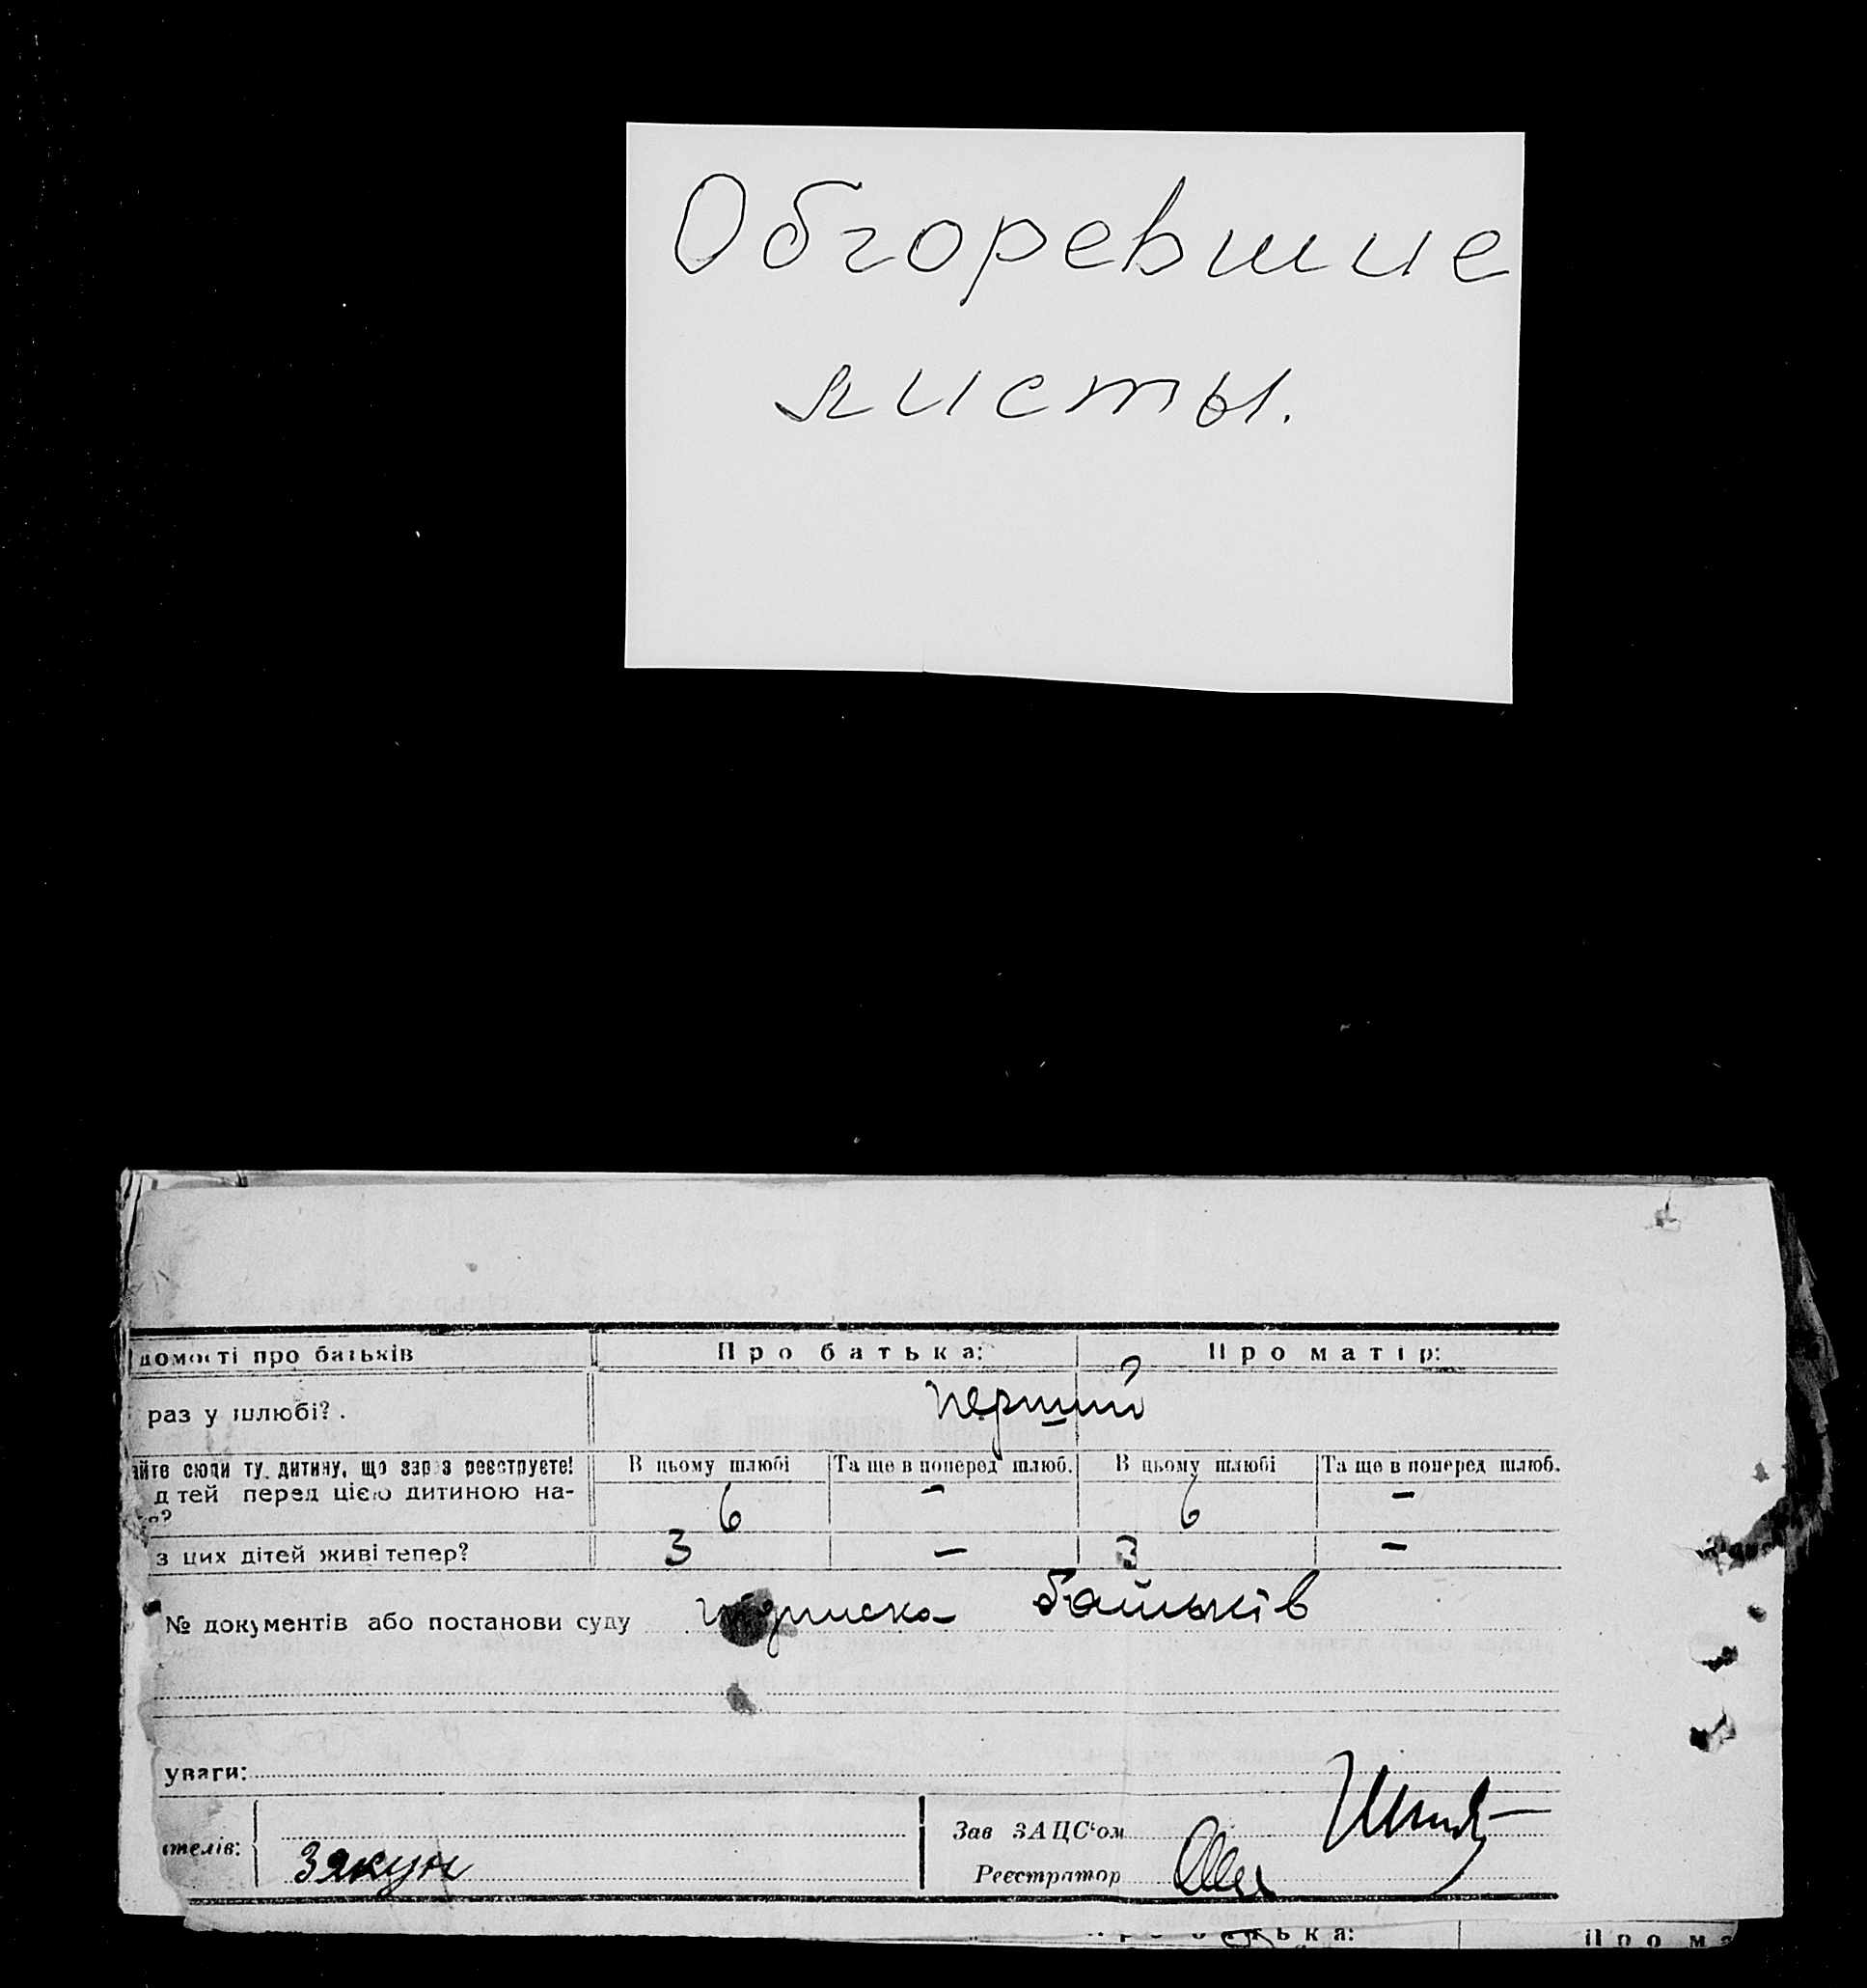 Обгоревшие
листы.
домості про батьків Про батька: Про матір:
раз у шлюбі?. перший
айте сюди ту дитину, що зараз реєструєте! В цьому шлюбі Та ще в поперед шлюб. В цьому шлюбі Та ще в поперед шлюб.
дтей перед цією дитиною на- 6 – 6 –
з цих дітей живі тепер? 3 – 3 –
№ документів або постанови суду підписка батьків
уваги:
Зав ЗАЦС'ом
ителів: Зякун Реєстратор
батька: Про ма